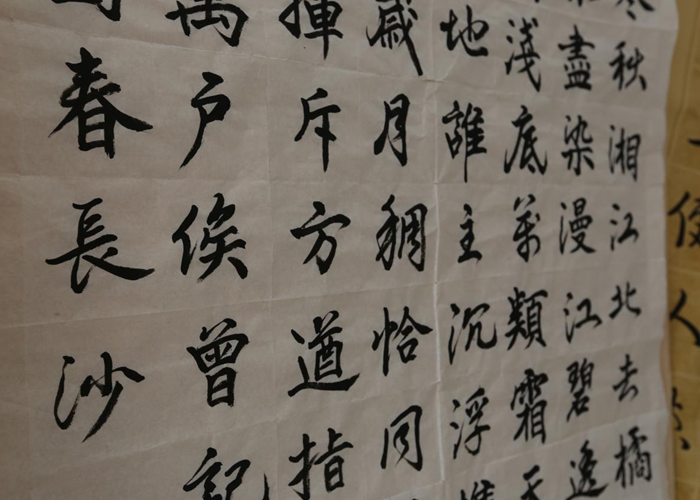 秋湘江北去橘
盡染漫江碧透
淺底萬類霜天
地誰主沉浮
歲月稠恰同
揮斥方遒指
萬户侯曾記
春長沙